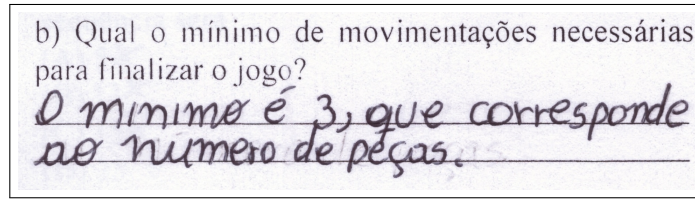 b) Qual o mínimo de movimentações necessárias
para finalizar o jogo?
O minimo é 3, que corresponde
ao número de peças.